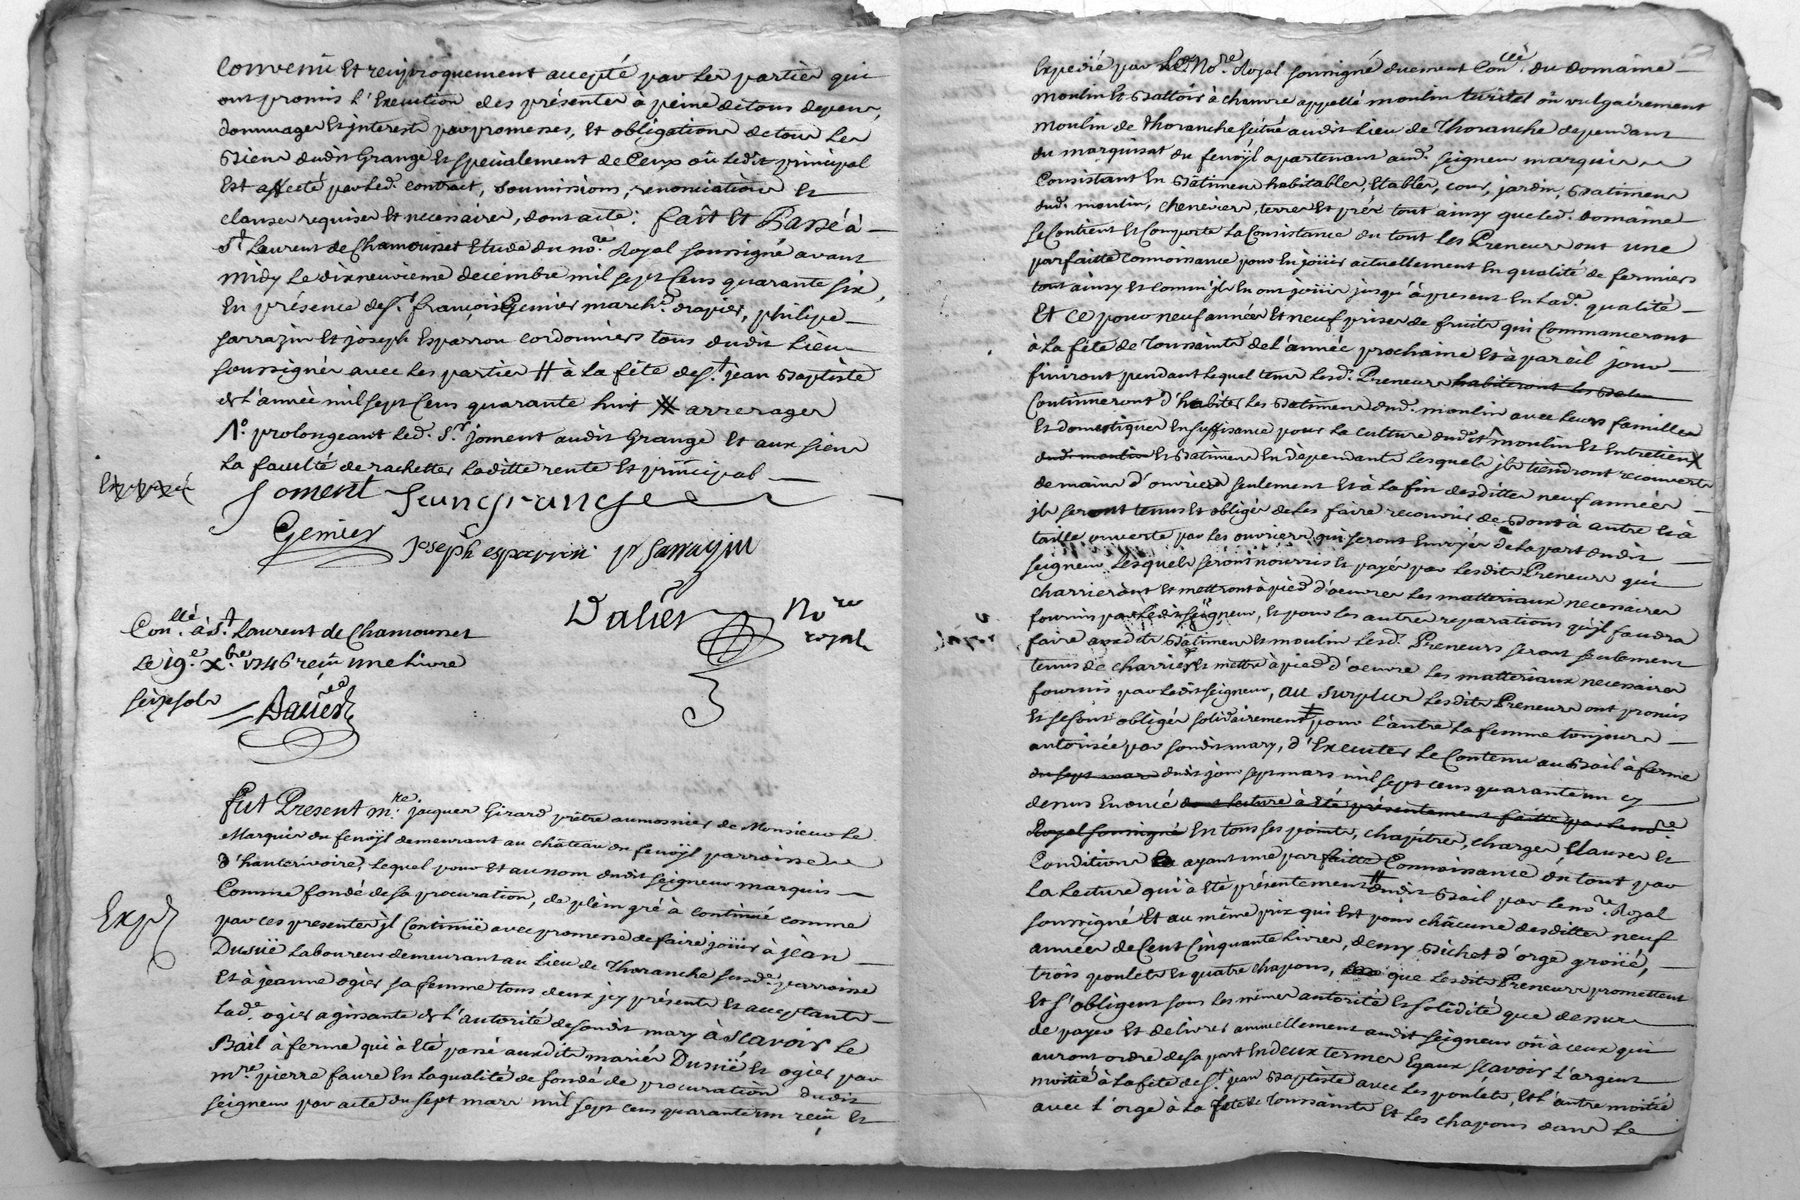 Convenu Et reciproquement accepté par Les parties qui
ont promis l'Execution des présentes à peine de tous depens,
dommages Et interests par promesses, Et obligations de tous Les
Biens dudit Grange Et specialement de Ceux où Ledit principal
Est affecté par Led. contract, soumissions, renonciations Et
clauses requises Et necessaires, dont acte: fait Et Passé à
St. Laurent de Chamousset Etude du nore. Royal soussigné avant
midy Le dixneuvieme decembre mil sept Cens quarante six,
En présence de Sr. françois Genier march. drapier, philipe
sarrazin Et joseph Esparron cordonniers tous dudit Lieu
soussignés avec Les parties # à La fête de St. jean Baptiste
de L'année mil sept Cens quarante huit arrerages
prolongeant Led. Sr. joment audit Grange Et aux siens
La faculté de rachetter Laditte rente Et principal
Joment Jean grange
Genier joseph esparron p Sarrazin
Dalier Nore
royal
Conllé. à St. Laurent de Chamousset
Le 19e. Xbre 1746 reçu une Livre
six sols
Fut Present mre. jacques Girard prêtre aumosnier de Monsieur Le
Marquis du fenoÿl demeurant au château du fenoÿl parroisse
d'hauterivoire, Lequel pour Et au nom dudit seigneur marquis
Comme fondé de sa procuration, de plein gré à continué comme
par ces presentes jl Continüe avec promesse de faire joüir à jean
Dusuïe Laboureur demeurant au Lieu de Thoranche susd. parroisse
Et à jeanne ogier sa femme tous deux jcy présents Et acceptants
Lad. ogier agissante de L'autorité de son dit mary à Scavoir Le
Bail à ferme qui à Eté passé auxdits mariés Dusuïé Et ogier par
mre. pierre faure En La qualité de fondé de procuration dudit
seigneur par acte du sept mars mil sept cens quarante un reçu Et
Expd
Expedié par Le Nore. Royal soussigné duement Conllé. du domaine
moulin Et Battoir à chanvre appellé moulin où vulgairement
moulin de Thoranche scitué audit Lieu de Thoranche dependant
du marquisat du fenoÿl apartenant aud. seigneur marquis
Consistant En Bâtimens habitables, Etables, cour, jardin, Batimens
dud. moulin, chenevier, terres Et préz tout ainsy que Led. domaine
se Contient Et Comporte La Consistance du tout Les Preneurs ont une
parfaitte connoissance pour En joüir actuellement En qualité de fermiers
tout ainsy Et Comm'jls En ont joüi jusqu'à present En Lad. qualité
Et Ce pour neuf années Et neuf prises de fruits qui Commanceront
à La fête de Toussaints de L'année prochaine Et à pareil jour
finiront pendant Lequel tems Lesd. Preneurs habiteront Les Batim
Continueront d'habiter Les Batimens dud. moulin avec Leurs familles
Et domestiques En suffisance pour La culture dudit moulin Et Entretien
dud. moulin Et Bâtimens En dependants Lesquels jls tiendront recouverts
de mains d'ouvriers seulement Et à La fin desdittes neuf années
jls seront tenus Et obligés de Les faire recouvrir de Bout à autre Et à
taille ouverte par Les ouvriers qui seront Envoyés de La part dudit
seigneur Lesquels seront nourris Et payés par Lesdits Preneurs qui
charrieront Et mettront à pied d'oeuvre Les matteriaux necessaires
fournis par Ledit seigneur, Et pour Les autres reparations qu'jl faudra
faire auxdits Bâtimens Et moulin Lesd. Preneurs seront seulement
tenus de charrier Et mettre à pied d'oeuvre Les matteriaux necessaires
fournis par Ledit seigneur, au surplus Lesdits Preneurs ont promis
Et se sont obligés solidairement pour L'autre La femme toujours
autorisée par sondit mary, d'Executer Le Contenu au Bail à ferme
du sept mars dudit jour sept mars mil sept cens quarante un cy
dessus Enoncé dont Lecture à Eté présentement faitte par Le nore
Royal soussigné En tous ses points, chapitres, charges Clauses Et
Conditions ayant une parfaitte Connoissance du tout par
La Lecture qui à Eté présentement dudit Bail par Le nore. Royal
soussigné Et au même prix qui Est pour châcune desdittes neuf
années de Cent Cinquante Livres, demy Bichet d'orge
trois poulets Et quatre chapons, que Lesdits Preneurs promettent
Et s'obligent sous Les mêmes autorité Et solidité que dessus
de payer Et delivrer annuellement audit seigneur où à ceux qui
auront ordre de sa part En deux termes Egaux Scavoir L'argent
moitié à La fete de St. jean Baptiste avec Les poulets, Et L'autre moitié
avec L'orge à La fete de Toussaints Et Les chapons dans Le